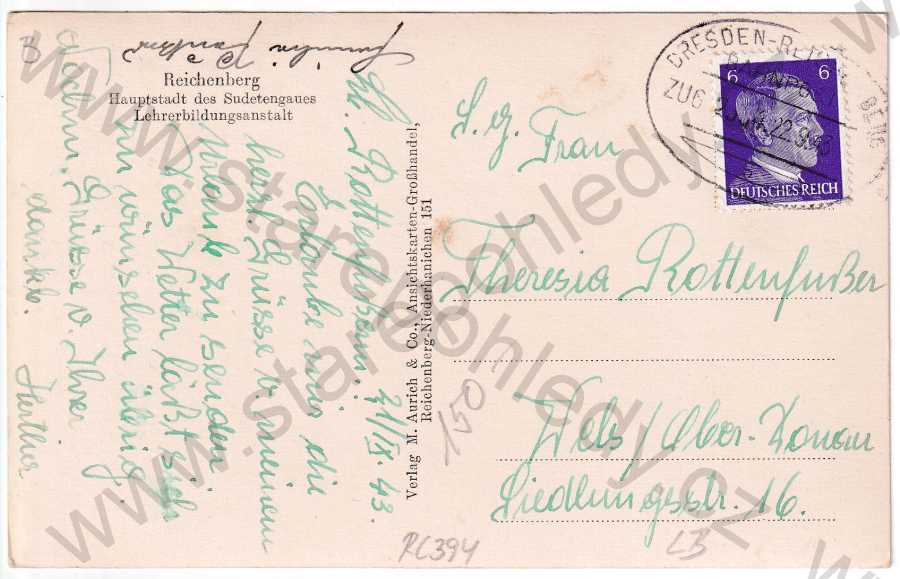 Reichenberg
Hauptstadt des Sudetengaues
Lehrerbildungsanstalt
21/IX. 43.
Lb. Rottenfußerin!
Erlaube mir die
herzl. Grüsse v. meinem
Urlaub zu senden
Das Wetter läßt sich
zu wünschen übrig
Nochm. Grüsse v. Ihrer
dankb. Hertha
Verlag M. Aurich & Co., Ansichtskarten-Großhandel,
Reichenberg-Niederhanichen 151
DRESDEN-REICHENBERG
BAHNPOST
ZUG
22.9.43
6 6
DEUTSCHES REICH
S. g. Frau
Theresia Rottenfußer
Wels/Ober-Donau
Siedlungsstr. 16.
150
RC394
LB
www.stareohledy.cz